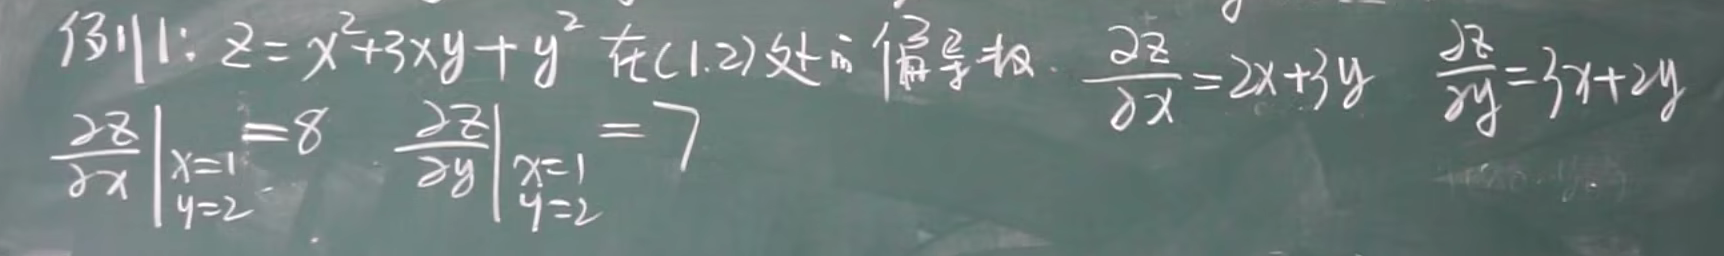 例1: z=x²+3xy+y² 在(1.2)处的偏导数. ∂z/∂x=2x+3y ∂z/∂y=3x+2y
∂z/∂x|x=1 y=2 =8 ∂z/∂y|x=1 y=2 =7